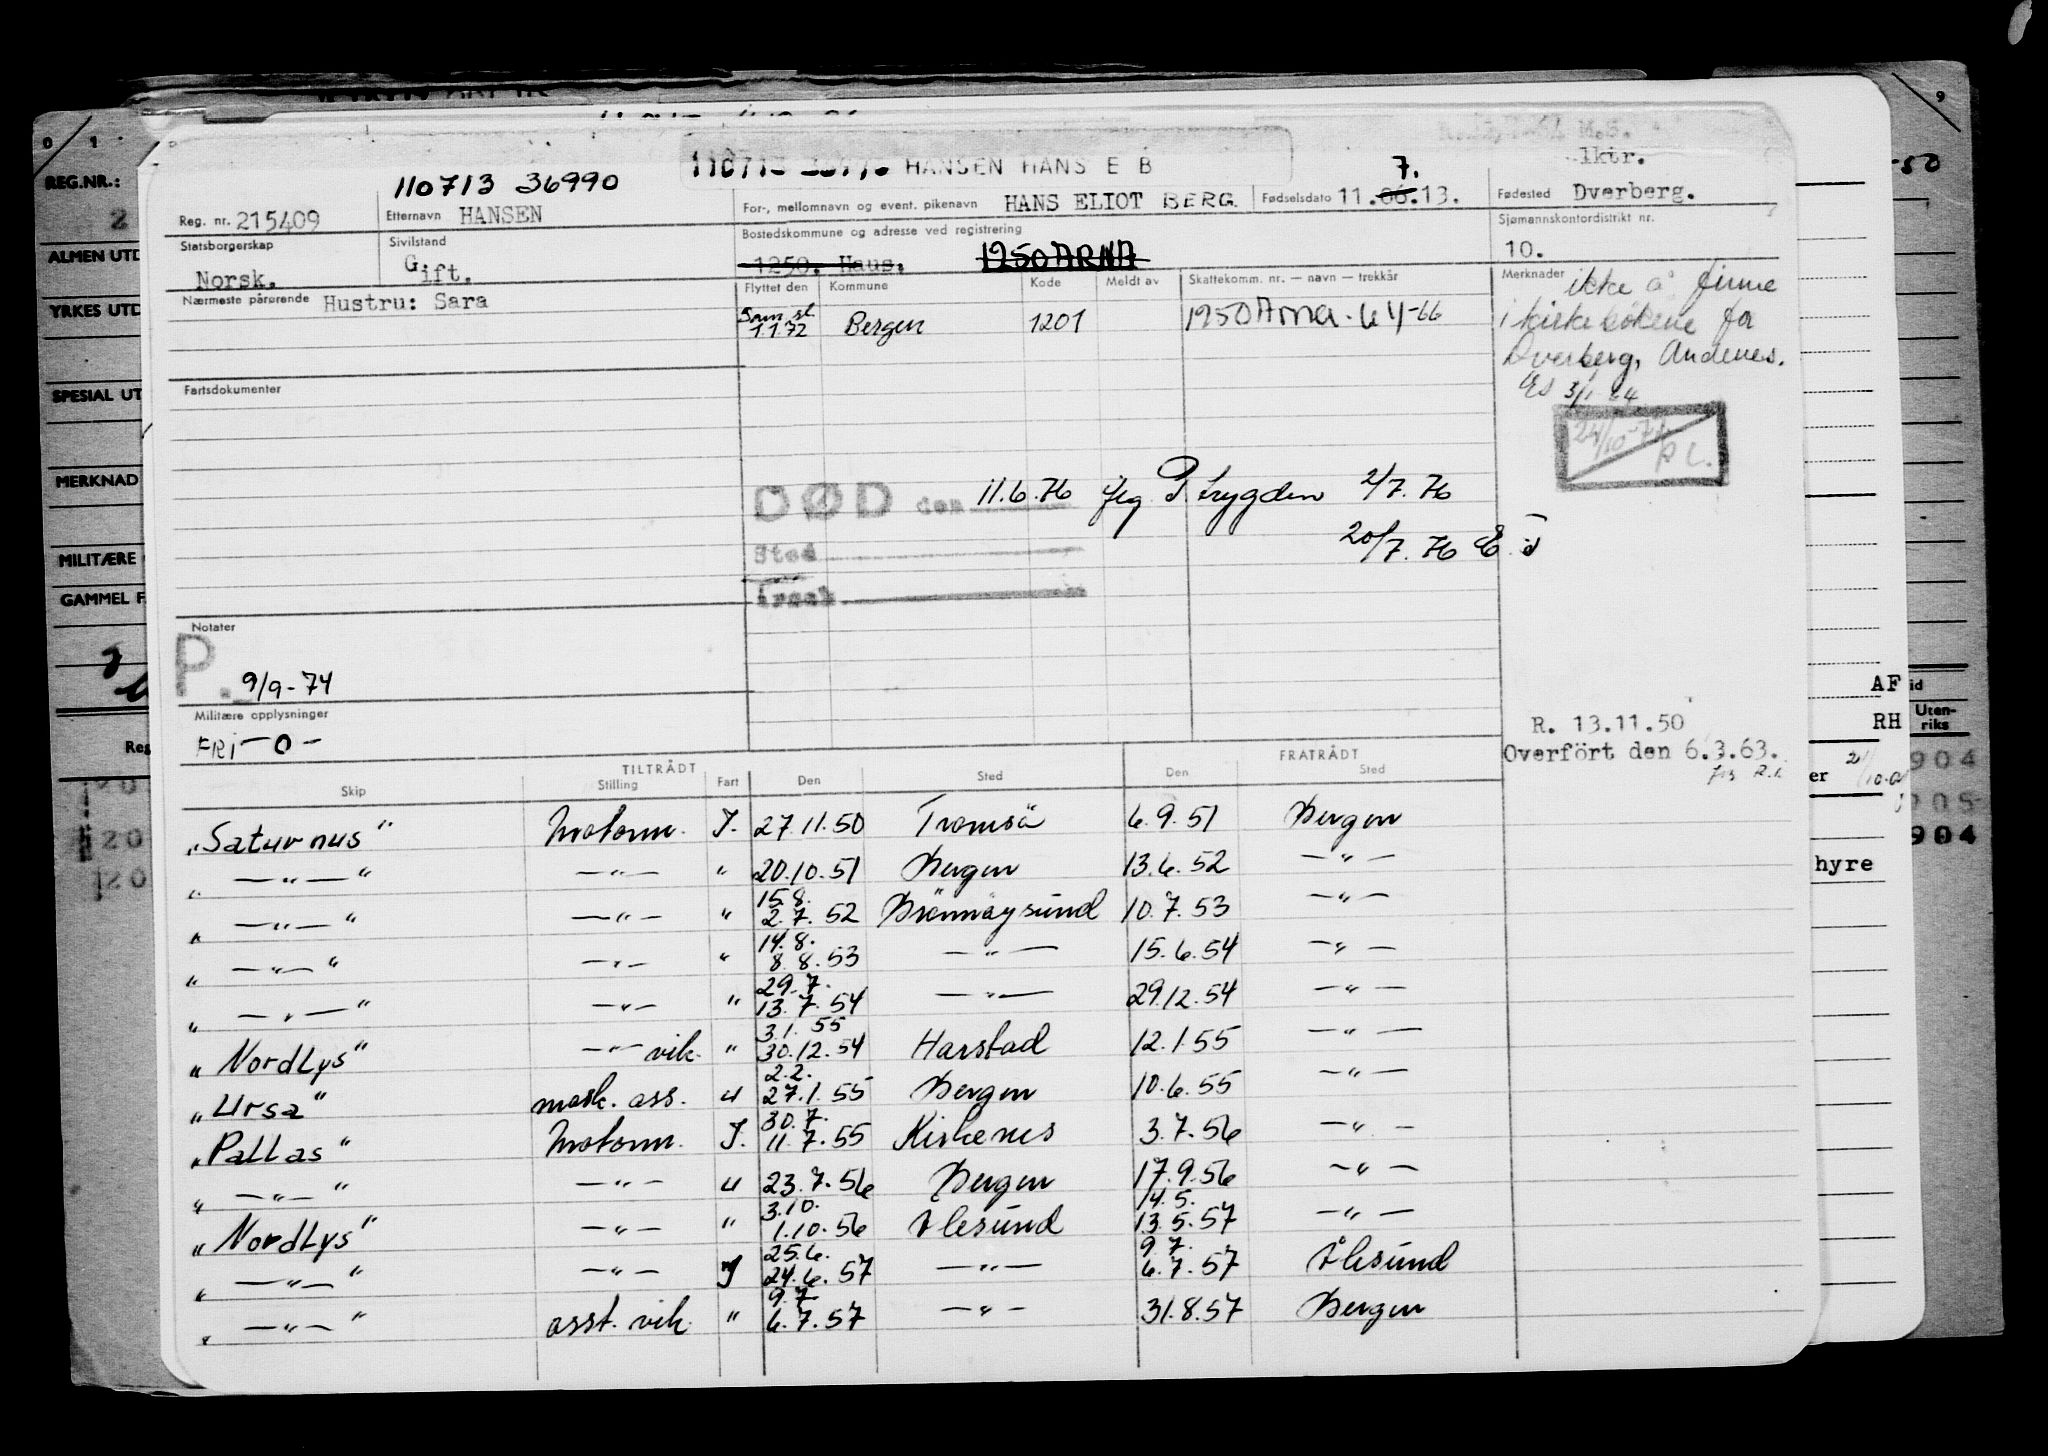 M.S.
1ktr.
110713 36990
HANSEN HANS E B
7.
Reg. nr. 215409
Etternavn HANSEN
For-, mellomnavn og event. pikenavn HANS ELIOT BERG.
Fødselsdato 11.06.13.
Fødested Dverberg.
Statsborgerskap
Norsk.
Sivilstand
Gift.
Bostedskommune og adresse ved registrering
1250. Haus. 1250 ARNA
Sjømannskontordistrikt nr.
10.
Nærmeste pårørende Hustru: Sara
Flyttet den Kommune Kode Meldt av Skattekomm. nr. — navn — trekkår
Sam.sl. 1.1.72 Bergen 1201 1250 Arna - 64-66
Merknader ikke å finne
i kirkebökene for
Dverberg, Andenes.
Fartsdokumenter
DØD den 11.6.76 2/7. 76
Sted 20/7. 76
Årsak
Notater
P. 9/9-74
Militære opplysninger
FRI - O -
R. 13.11.50
Overfört den 6.3.63.
TILTRÅDT FRATRÅDT
Skip Stilling Fart Den Sted Den Sted
"Saturnus" Motorm. I. 27.11.50 Tromsö 6.9.51 Bergen
" — " — " — " — " 20.10.51 Bergen 13.6.52 — " —
" — " — " — " — " 15.8. 2.7.52 Brönnöysund 10.7.53 — " —
" — " — " — " — " 14.8. 8.8.53 — " — 15.6.54 — " —
" — " — " — " — " 29.7. 13.7.54 — " — 29.12.54 — " —
"Nordlys" — " — vik. " 3.1.55 30.12.54 Harstad 12.1.55 — " —
"Ursa" mask. ass. u 2.2. 27.1.55 Bergen 10.6.55 — " —
"Pallas" Motorm. I. 30.7. 11.7.55 Kirkenes 3.7.56 — " —
" — " — " — " — u 23.7.56 Bergen 17.9.56 — " —
"Nordlys" — " — " 3.10. 1.10.56 Ålesund 14.5. 13.5.57 — " —
" — " — " — " — I 25.6. 24.6.57 — " — 9.7. 6.7.57 Ålesund
" — " — " asst. vik. " 9.7. 6.7.57 — " — 31.8.57 Bergen
REG.NR.:
ALMEN UTD
YRKES UTD
SPESIAL UT
MERKNAD
MILITÆRE
GAMMEL F
Reg
AF
RH
Uten-
riks
904
er
904
hyre